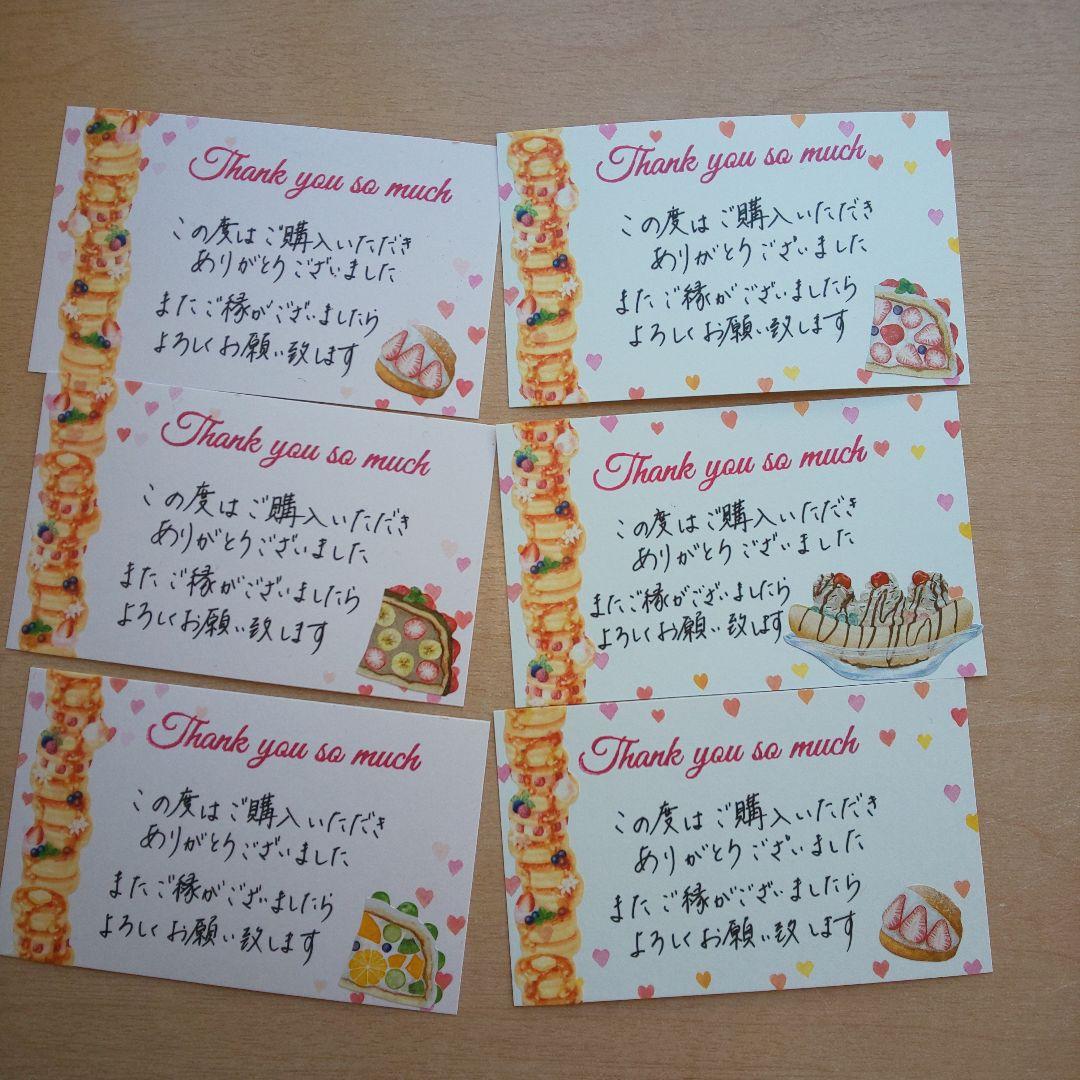 Thank you so much
この度はご購入いただき
ありがとうございました
またご縁がございましたら
よろしくお願い致します
Thank you so much
この度はご購入いただき
ありがとうございました
またご縁がございましたら
よろしくお願い致します
Thank you so much
この度はご購入いただき
ありがとうございました
またご縁がございましたら
よろしくお願い致します
Thank you so much
この度はご購入いただき
ありがとうございました
またご縁がございましたら
よろしくお願い致します
Thank you so much
この度はご購入いただき
ありがとうございました
またご縁がございましたら
よろしくお願い致します
Thank you so much
この度はご購入いただき
ありがとうございました
またご縁がございましたら
よろしくお願い致します